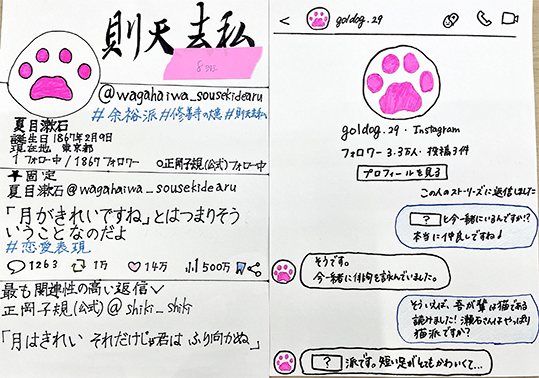 則天去私
8班
@wagahaiwa_sousekidearu
#余裕派#修善寺の大患#則天去私
夏目漱石
誕生日 1867年2月9日
現在地 東京都
1フォロー中/1867フォロワー
正岡子規(公式)フォロー中
固定
夏目漱石@wagahaiwa_sousekidearu
「月がきれいですね」とはつまりそう
いうことなのだよ
#恋愛表現
1263
14万
500万
最も関連性の高い返信
正岡子規(公式)@shiki_shiki
「月はきれい それだけじゃ君は ふり向かぬ」
< goldog.29
goldog.29・Instagram
フォロワー3.3万人・投稿3件
プロフィールを見る
この人のストーリーズに返信しました
?と今一緒にいるんですか!?
本当に仲良しですね!
そうです。
今一緒に俳句を詠んでいました。
そういえば、吾が輩は猫である
読みました!漱石さんはやっぱり
猫派ですか?
?派です。短い足がとてもかわいくて...